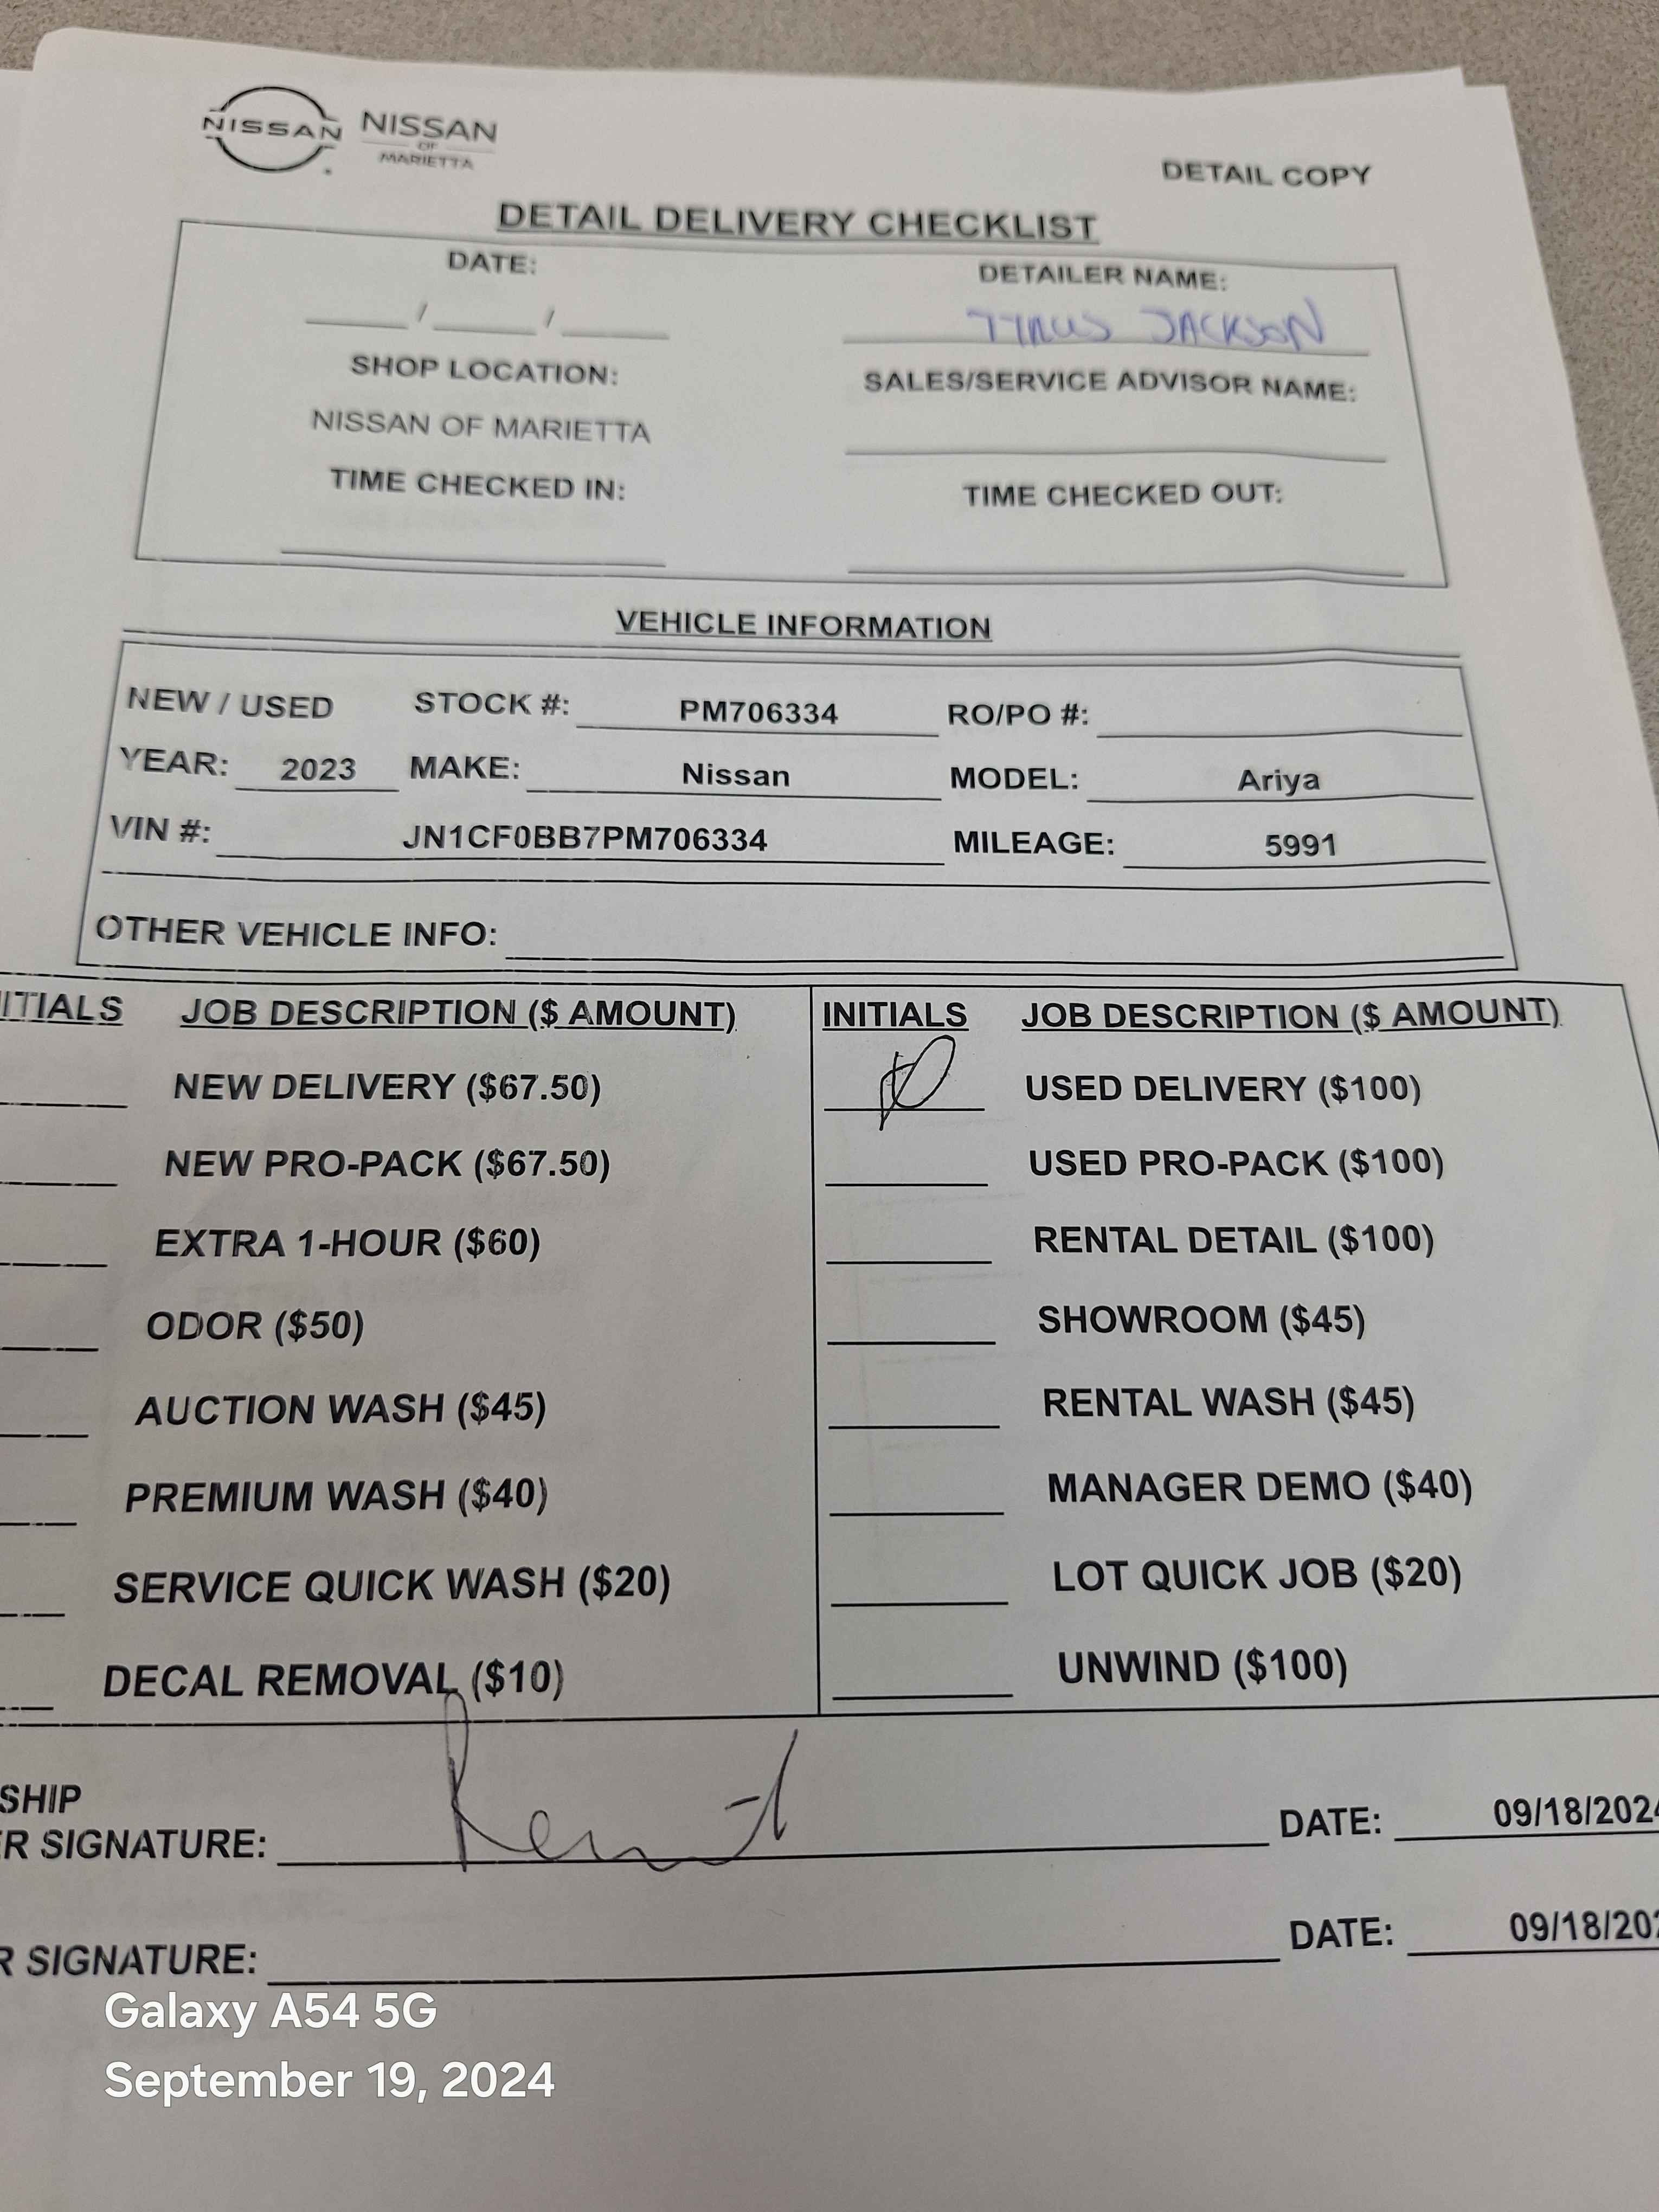 NISSAN NISSAN
OF
MARIETTA
DETAIL COPY
DETAIL DELIVERY CHECKLIST
DATE: DETAILER NAME:
/ / TYRUS JACKSON
SHOP LOCATION: SALES/SERVICE ADVISOR NAME:
NISSAN OF MARIETTA
TIME CHECKED IN: TIME CHECKED OUT:
VEHICLE INFORMATION
NEW / USED STOCK #: PM706334 RO/PO #:
YEAR: 2023 MAKE: Nissan MODEL: Ariya
VIN #: JN1CF0BB7PM706334 MILEAGE: 5991
OTHER VEHICLE INFO:
ITIALS JOB DESCRIPTION ($ AMOUNT) INITIALS JOB DESCRIPTION ($ AMOUNT)
NEW DELIVERY ($67.50) USED DELIVERY ($100)
NEW PRO-PACK ($67.50) USED PRO-PACK ($100)
EXTRA 1-HOUR ($60) RENTAL DETAIL ($100)
ODOR ($50) SHOWROOM ($45)
AUCTION WASH ($45) RENTAL WASH ($45)
PREMIUM WASH ($40) MANAGER DEMO ($40)
SERVICE QUICK WASH ($20) LOT QUICK JOB ($20)
DECAL REMOVAL ($10) UNWIND ($100)
SHIP
R SIGNATURE: DATE: 09/18/2024
R SIGNATURE: DATE: 09/18/202
Galaxy A54 5G
September 19, 2024